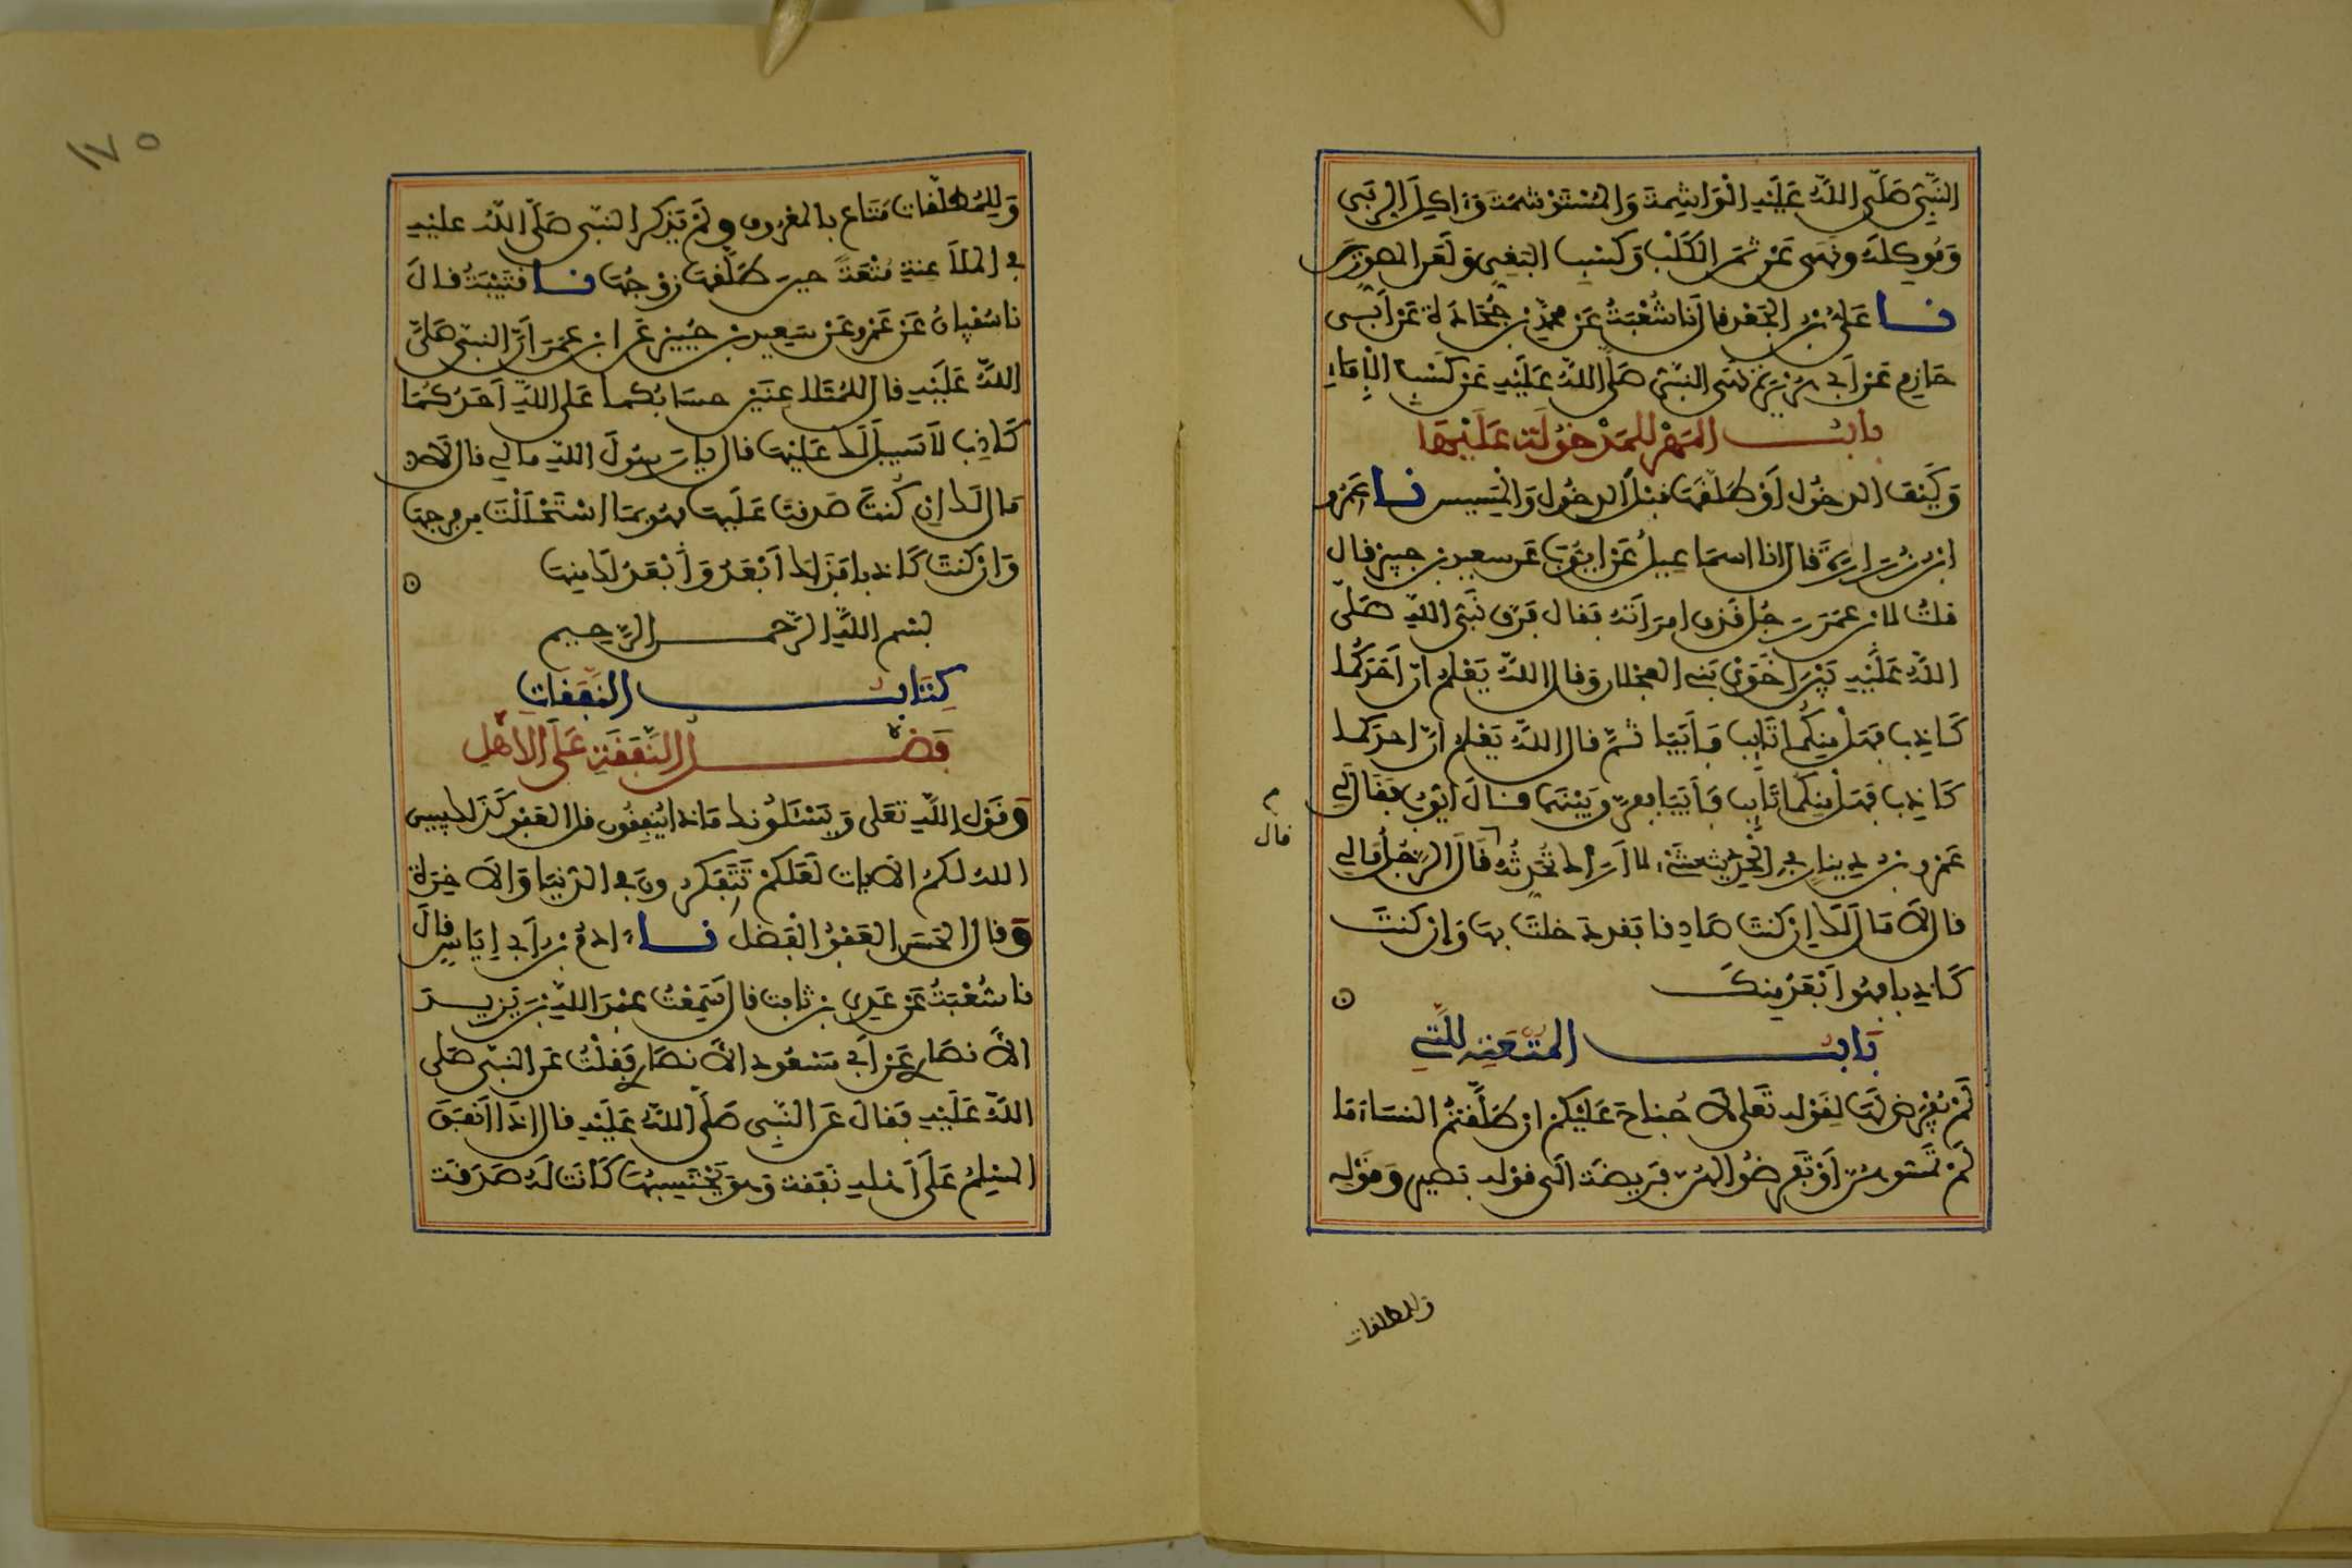 النَّبِىُّ صَلَّى اللَّهُ عَلَيْهِ الْوَاشِمةَ وَالمُسْتَوْشِمَةَ وَءَاكِلَ الرِّبَى
وَمُوكِلَهُ ونَهَى عَنْ ثمَنِ الْكَلْبِ وَكَسْبِ البَغِىِّ وَلَعَنَ المصورين
نا عَلىُّ بْنُ الجَعْدِ قال أَنا شُعْبَةُ عَنْ محمدِ بْنِ جُحَادَةَ عَنْ أَبِى
حَازِمٍ عَنْ أَبِي هُرَيْرَةَ نَهَى النبىُّ صَلَّى اللَّهُ عَلَيْهِ عَنْ كَسْبِ الْإِمَاءِ
بابُ المَهْرِ لِلمَدْخُولَةِ عَلَيْهَا
وَكَيْفَ الدخُول أَوْ طَلَّقَهَا قَبْلَ الدخُولِ وَالمَسِيسِ نا عَمْرُو
ابْنُ زُرَارَةَ قال انا اسماعِيلُ عَنْ ايُّوبَ عَن سعيدِ بن جبيرٍ قال
قلتُ لابنِ عمَرَ رَجُلٌ قَذَفَ امرَأَتَهُ فقال فَرَّقَ نَبِىُّ اللهِ صَلَّى
اللَّهُ عَلَيْهِ بَيْنَ أَخَوَيْ بَنِي العجْلان وَقال اللَّهُ يَعْلم انّ أحَدَكُما
كَاذِب فهَلْ مِنكُمَا تَائِب فَأَبَيَا ثُمَّ قال اللَّهُ يَعْلم انّ احدَكما
كَاذِب فهَل مِنكُمَا تَائِب فَأَبَيَا ففرّق بَيْنَهما قال ايُّوبُ فقَالَ لِي
م
قال
عَمْرو بنُ دِينارٍ فِي الْحَدِيثِ شَىْءٌ لا أَرَاك تُحَدِّثُهُ قَالَ الرَّجُلُ مَالِي
قال لَا مَالَ لَكَ إِن كنتَ صَادِقا فقد دخلتَ بها وَإِن كنتَ
كَاذِبا فهُو أَبْعَدُ مِنكَ
بَابُ المُتْعَةِ لِلَّتِي
لَمْ يُفْرَض لهَا لِقَوْلِهِ تَعَلى لَا جُنَاحَ عَلَيْكم ان طَلَّقْتُمُ النسَاءَ مَا
لَمْ تمَسّوهُنّ أَوْ تَفرضُوا لهُنّ فَرِيضَةً الَى قوْلهِ بَصِير وَقَوْلِهِ
وللمطلقات
١٧٥
وَلِلْمُطَلَّقَاتِ مَتَاع بالمَعْرُوفِ ولَمْ يَذْكرِ النبّىُّ صَلَّى اللَّهُ عليْهِ
فِي المُلَاعنَةِ مُتْعَةً حِينَ طَلَّقَهَا زَوْجُهَا نا قُتَيْبَةُ قالَ
نا سُفْيانُ عَنْ عَمْرٍو عَنْ سَعِيدِ بن جُبَيْرٍ عَن ابْنِ عمَرَ أَنَّ النبىَّ صَلَّى
اللَّهُ عَلَيْهِ قال للمُتَلاعِنَيْنِ حسَابُكما عَلى اللهِ أَحَدُكُمَا
كَاذِب لَا سَبِيلَ لَكَ عَلَيْهَا قال يا رَسُولَ اللهِ مالي قال لَا
مَالَ لَكَ إِن كُنتَ صَدقتَ عَلَيها فهُوَ بما اسْتَحْلَلْتَ مِن فرجها
وَإن كنتَ كَاذبا فَذَاك أَبْعَدُ وَأَبْعَدُ لكَ مِنها
بسْم اللهِ الرَّحمن الرَّحِيم
كِتَابُ النَّفَقَاتِ
فَضْلِ النَّفَقَةِ عَلَى الأَهْلِ
وَقَوْلِ اللَّهِ تعَلى وَيَسْئَلُونك مَاذا يُنفِقُون قل العَفْو كَذَلك يبين
الله لكم الآيات لعَلكمْ تَتَفَكرون فِي الدّنيَا وَالاخِرَة
وَقال الحَسَن العَفْوُ الْفَضْلُ نا ءادمُ بنُ أَبي إِيَاسٍ قالَ
نا شُعْبَةُ عَنْ عَدِي بنِ ثابت قال سَمِعْتُ عبْدَ اللهِ بْنَ يَزِيدَ
الأَنصَارِي عَنْ أَبِي مَسْعُودٍ الأَنصَارِي فَقُلْتُ عَن النبّىِ صَلى
اللَّهُ عَلَيْهِ فقال عَن النَّبِى صَلَّى اللَّهُ عَلَيْهِ قال إذَا أَنفَقَ
المسْلِمُ عَلَى أَهْلِهِ نَفَقة وَهوَ يَحْتَسِبُهَا كَانَتْ لَهُ صَدَقَة